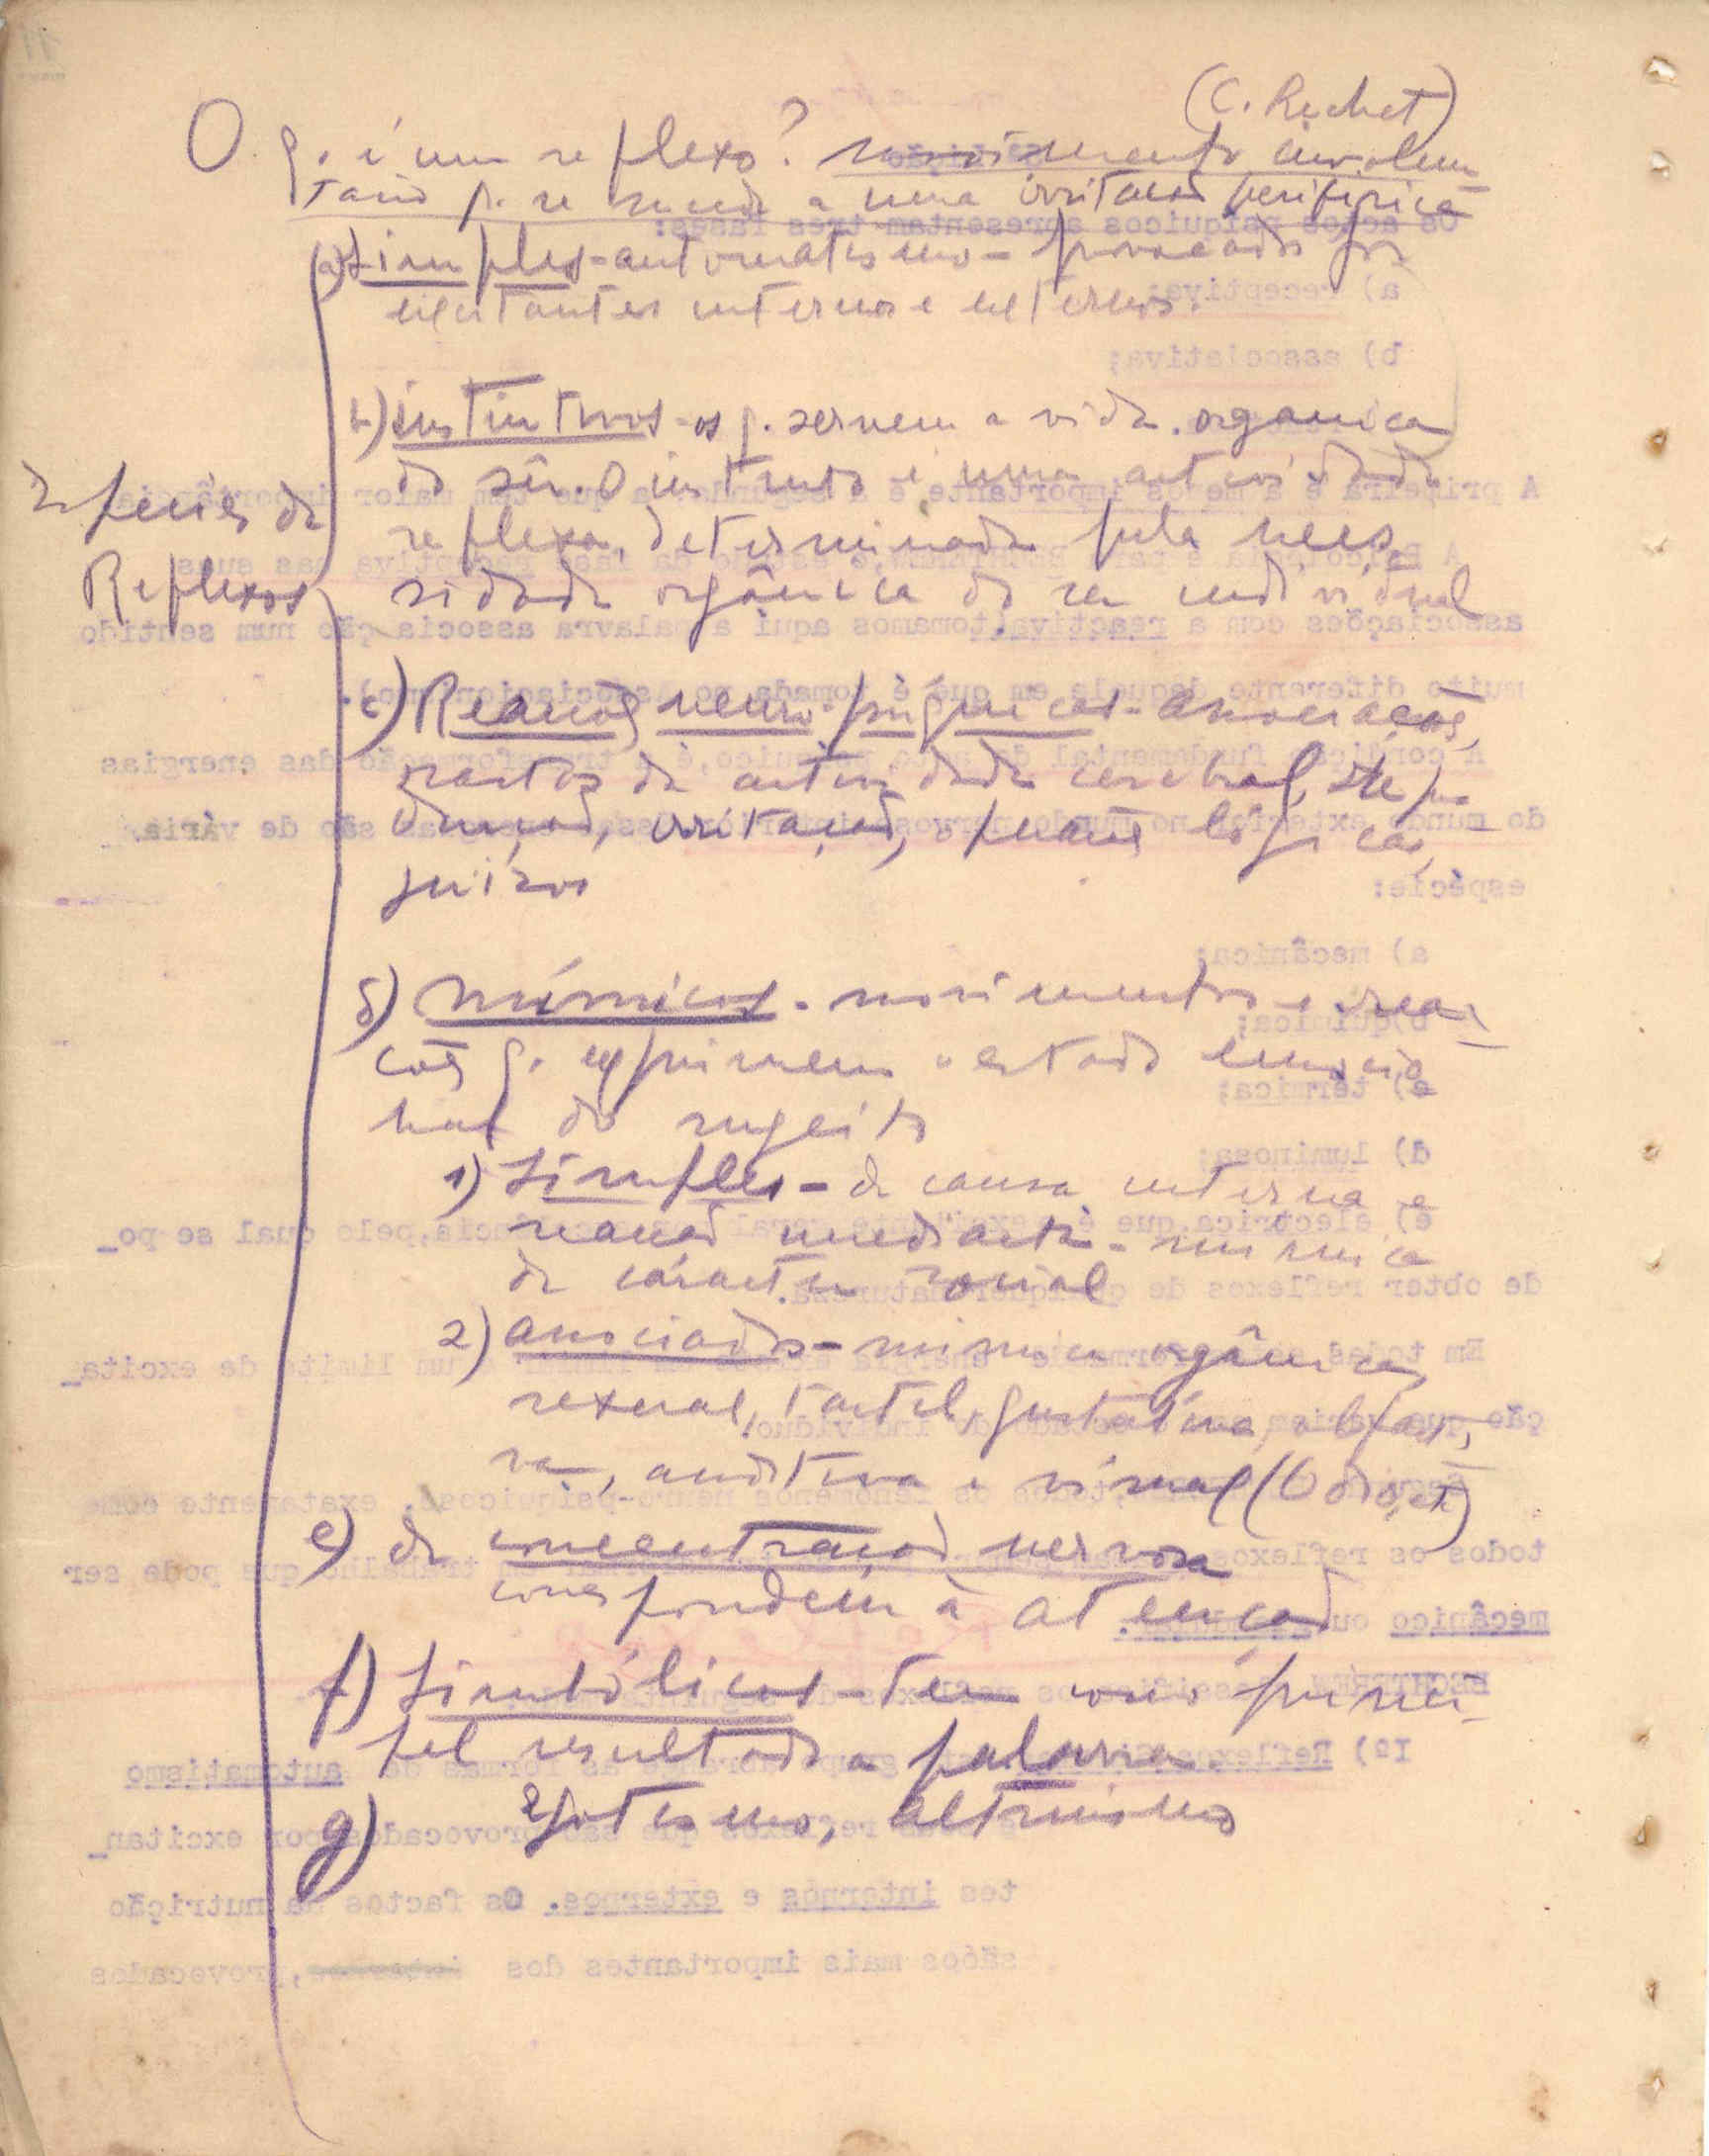 (C. Richet)
O q. é um reflexo? movimento involun
tario q. se sucede a uma irritacão periferica
Especies de
Reflexos
a) Simples - automatismo - provocados por
excitantes internos e externos.
b) instintivos - os q. servem a vida organica
do sêr. O instinto é uma actividade
reflexa, determinada pela neces
sidade orgânica do ser individual
c) Reações neuro-psiquicas - associações,
da actividade cerebral,
irritação, operações lógicas,
juizos
d) mímicos - movimentos e rea_
cões q. exprimem o estado emocio
nal do sugeito
1) Simples - de causa interna e
reacção imediacta - mimica
de cáracter social
2) associados - mimica orgânica,
sexual, tactil, gustativa, olfati_
va, auditiva e visual (Odio, etc)
e) de concentracão nervosa
correspondem à atenção
f) Simbólicos - tem como princi_
pal resultado a palavra.
g) Egotismo, altruismo